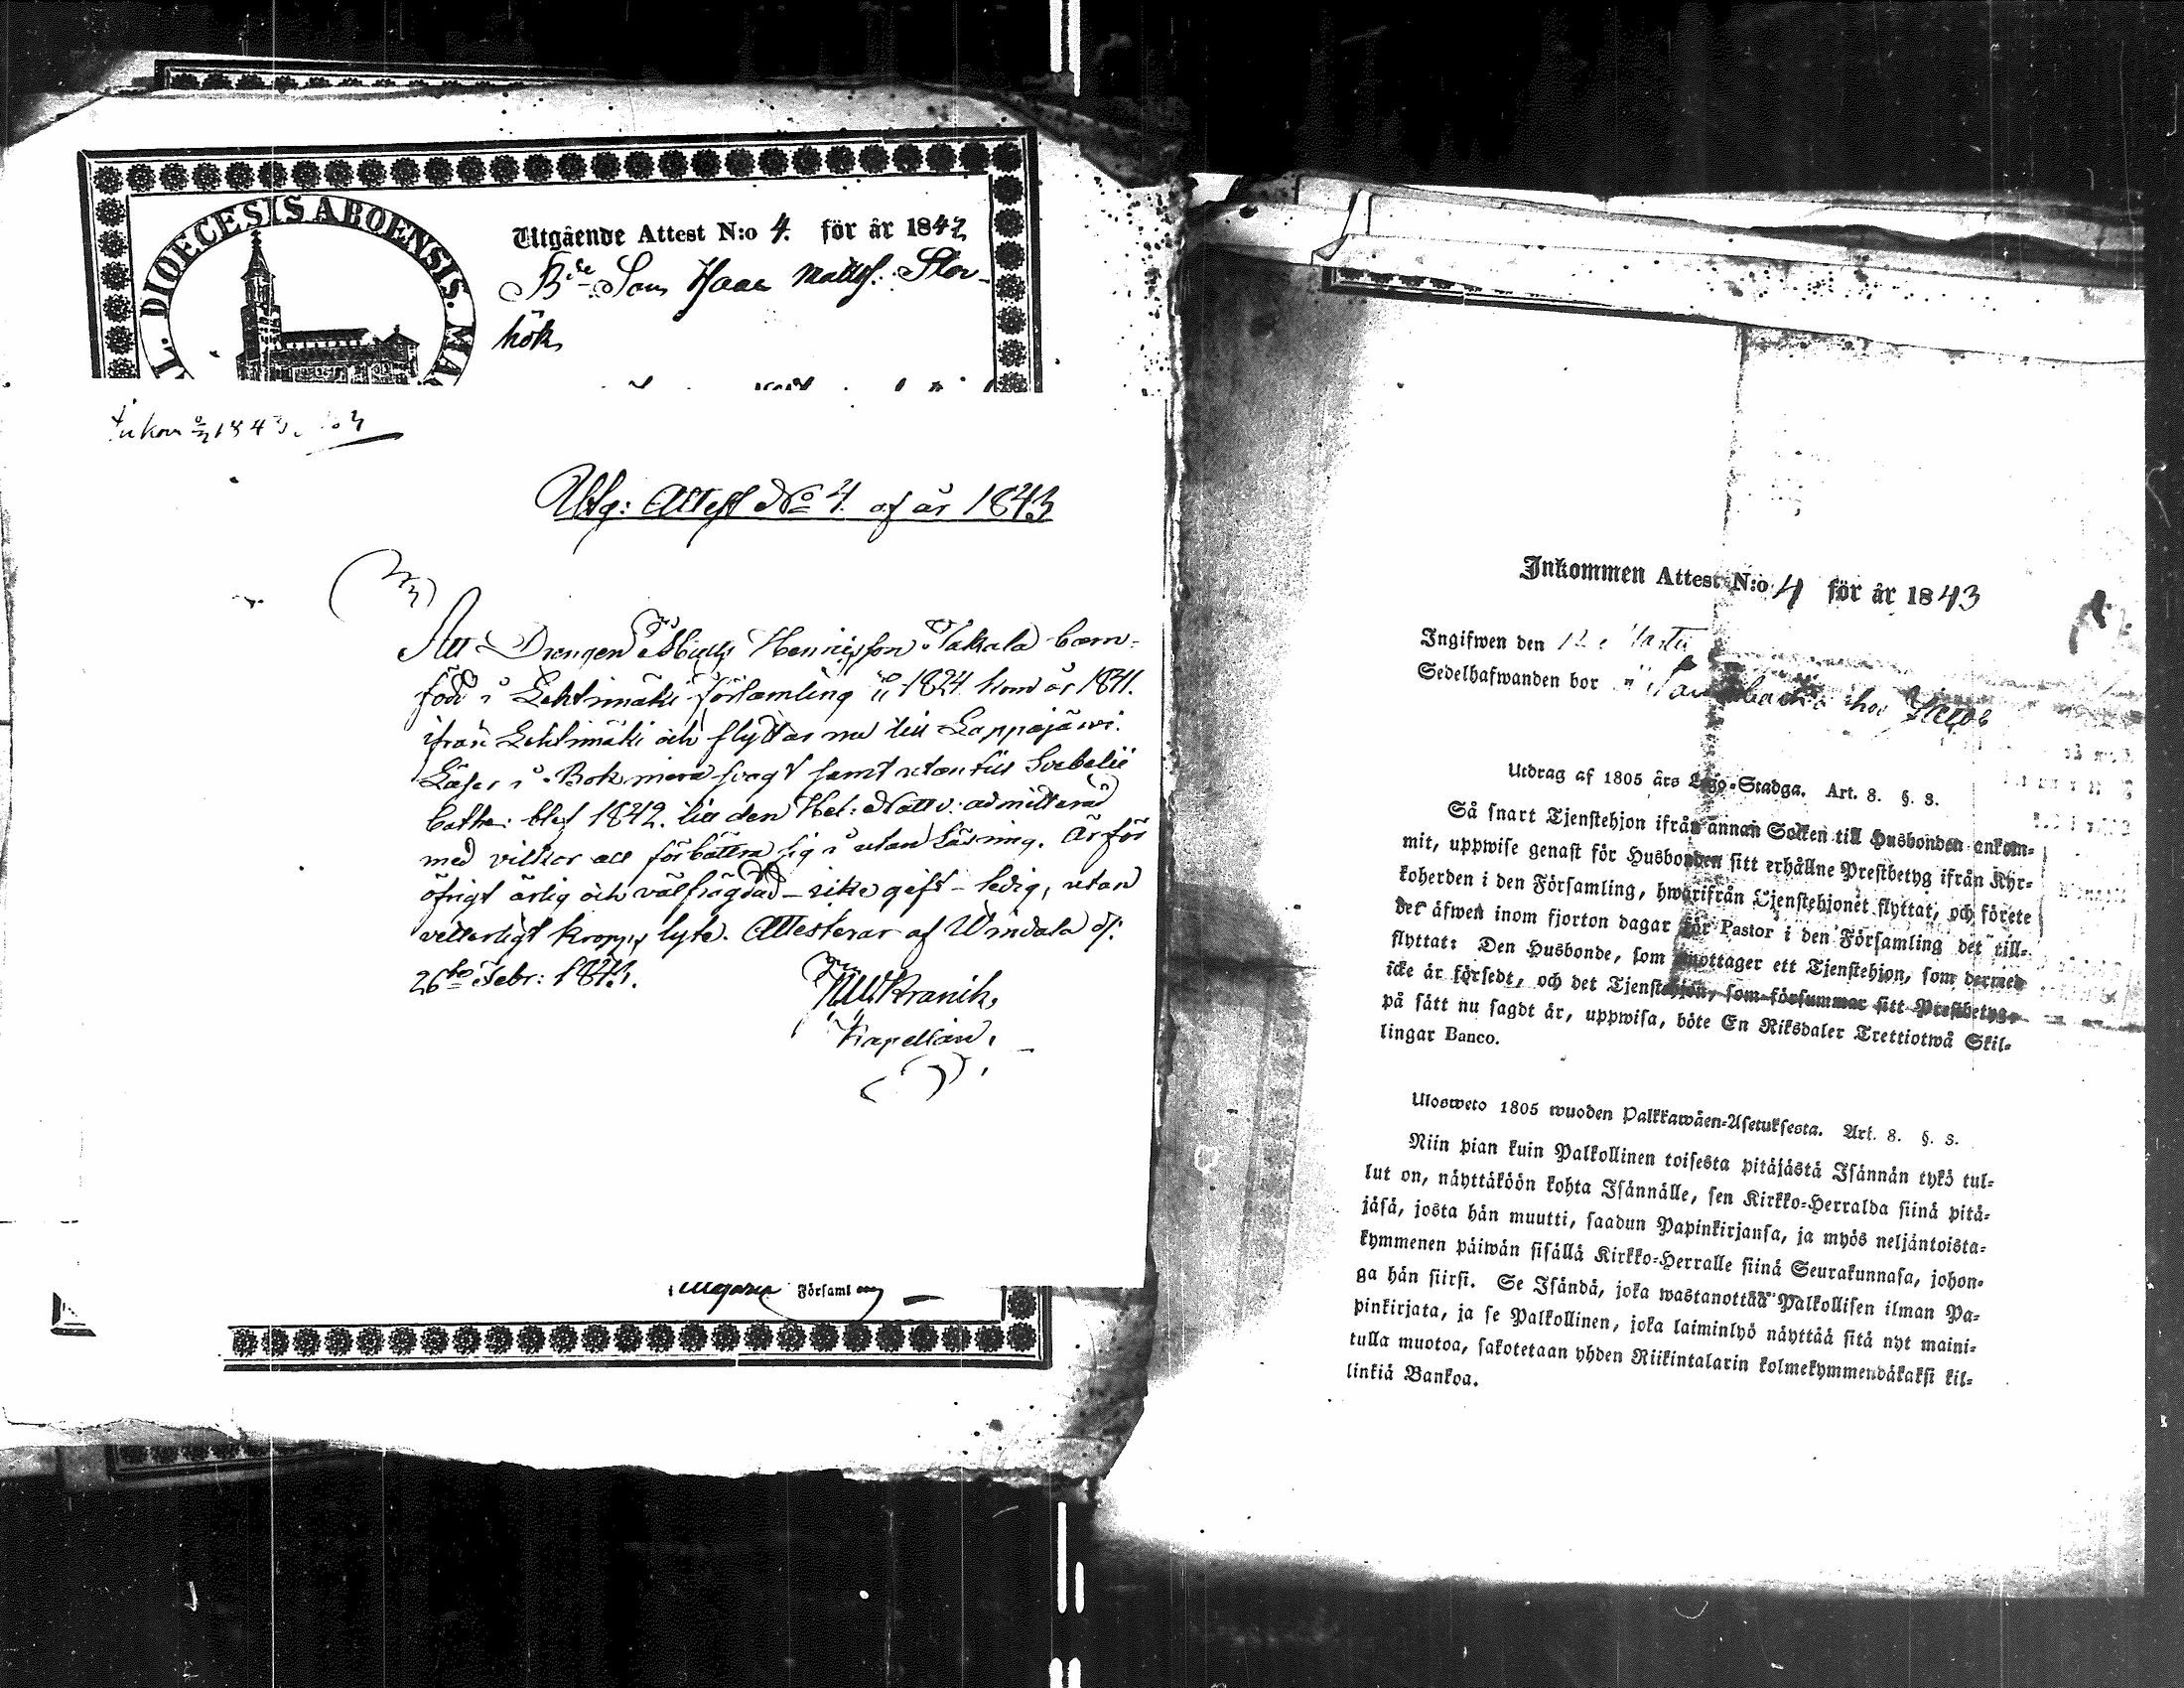 DIOECESIS ABOENSIS. MA
Utgående Attest N:o 4. för år 1842
B:de Son Isaac Matts. Stor-
hök
Inkom 1843.
Utg: Attest No 4. af år 1843
Att Drengen Matts Henricsson Takala barn-
född i Lehtimäki församling 1824. kom år 1841.
ifrån Lehtimäki och flyttar nu till Lappajärvi.
Läser i Bok svagt samt utantill Svebelii
Cathe: blef 1842. till den Hel: Nattv: admitterad
med vilkor att förbättra sig i utan Läsning. Är för
öfrigt ärlig och välfrägdad – icke gift – ledig, utan
vetterligt kropps lyte. Attesterar af Windala d.
26te Febr: 1843.
Kapellan.
Församling
Inkommen Attest N:o 4 för år 1843
Ingifwen den Martii
Sedelhafwanden bor hos Jacob
Utdrag af 1805 års Lego-Stadga. Art. 8. §. 3.
Så snart Tjenstehjon ifrån annan Socken till Husbonden ankom-
mit, uppwise genast för Husbonden sitt erhållne Prestbetyg ifrån Kyr-
koherden i den Församling, hwarifrån Tjenstehjonet flyttat, och förete
det äfwen inom fjorton dagar för Pastor i den Församling det till-
flyttat: Den Husbonde, som emottager ett Tjenstehjon, som dermed
icke är försedt, och det Tjenstehjon, som försummar sitt Prestbetyg,
på sätt nu sagdt är, uppwisa, böte En Riksdaler Trettiotwå Skil-
lingar Banco.
Ulosweto 1805 wuoden Palkkawäen-Asetuksesta. Art. 8. §. 3.
Niin pian kuin Palkollinen toisesta pitäjästä Isännän tykö tul-
lut on, näyttäköön kohta Isännälle, sen Kirkko-Herralda siinä pitä-
jäsä, josta hän muutti, saadun Papinkirjansa, ja myös neljäntoista-
kymmenen päiwän sisällä Kirkko-Herralle siinä Seurakunnasa, johon-
ga hän siirsi. Se Isändä, joka wastanottaa Palkollisen ilman Pa-
pinkirjata, ja se Palkollinen, joka laiminlyö näyttää sitä nyt maini-
tulla muotoa, sakotetaan yhden Riikintalarin kolmekymmendäkaksi kil-
linkiä Bankoa.